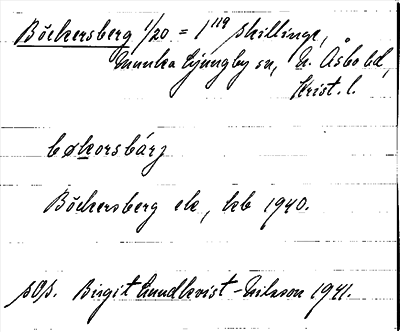 Böckersberg 1/20 = 1¹¹⁹ skillinge,
Munka Ljungby sn, N. Åsbo hd,
Krist. l.
bøkorsbárz
Böckersberg ek, kb 1940.
pOp. Birgit Lundkvist-Nilsson 1941.